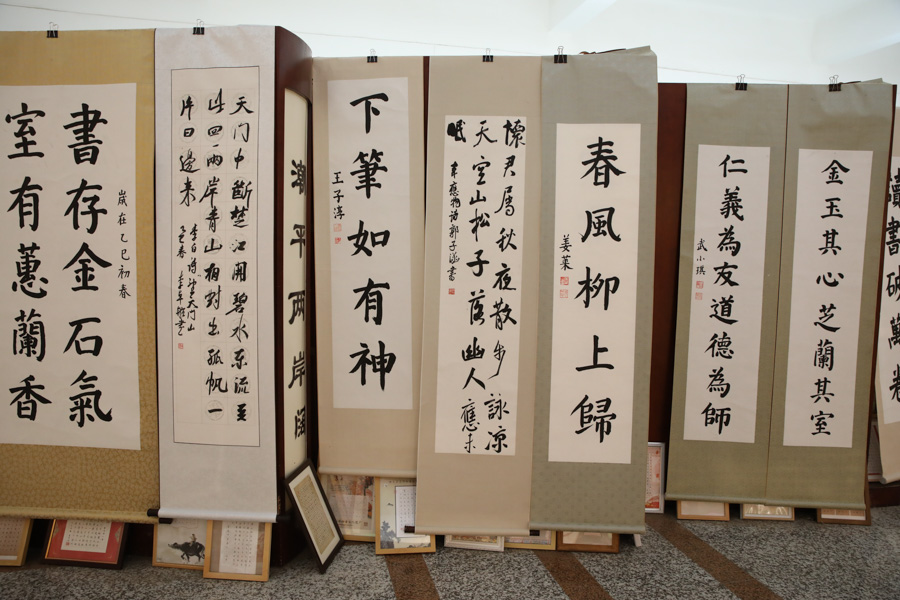 歲在乙巳初春
書存金石氣
室有蕙蘭香
天门中斷楚江開碧水东流至
此回两岸青山相對出孤帆一
片日邊来
李白诗望天门山
乙巳春
潮平两岸阔
下筆如有神
王子淳
懷君屬秋夜散步詠凉
天空山松子落幽人應未
眠
韋應物诗郭子涵書
春風柳上歸
金玉其心芝蘭其室
仁義為友道德為師
武小琪
讀書破萬卷